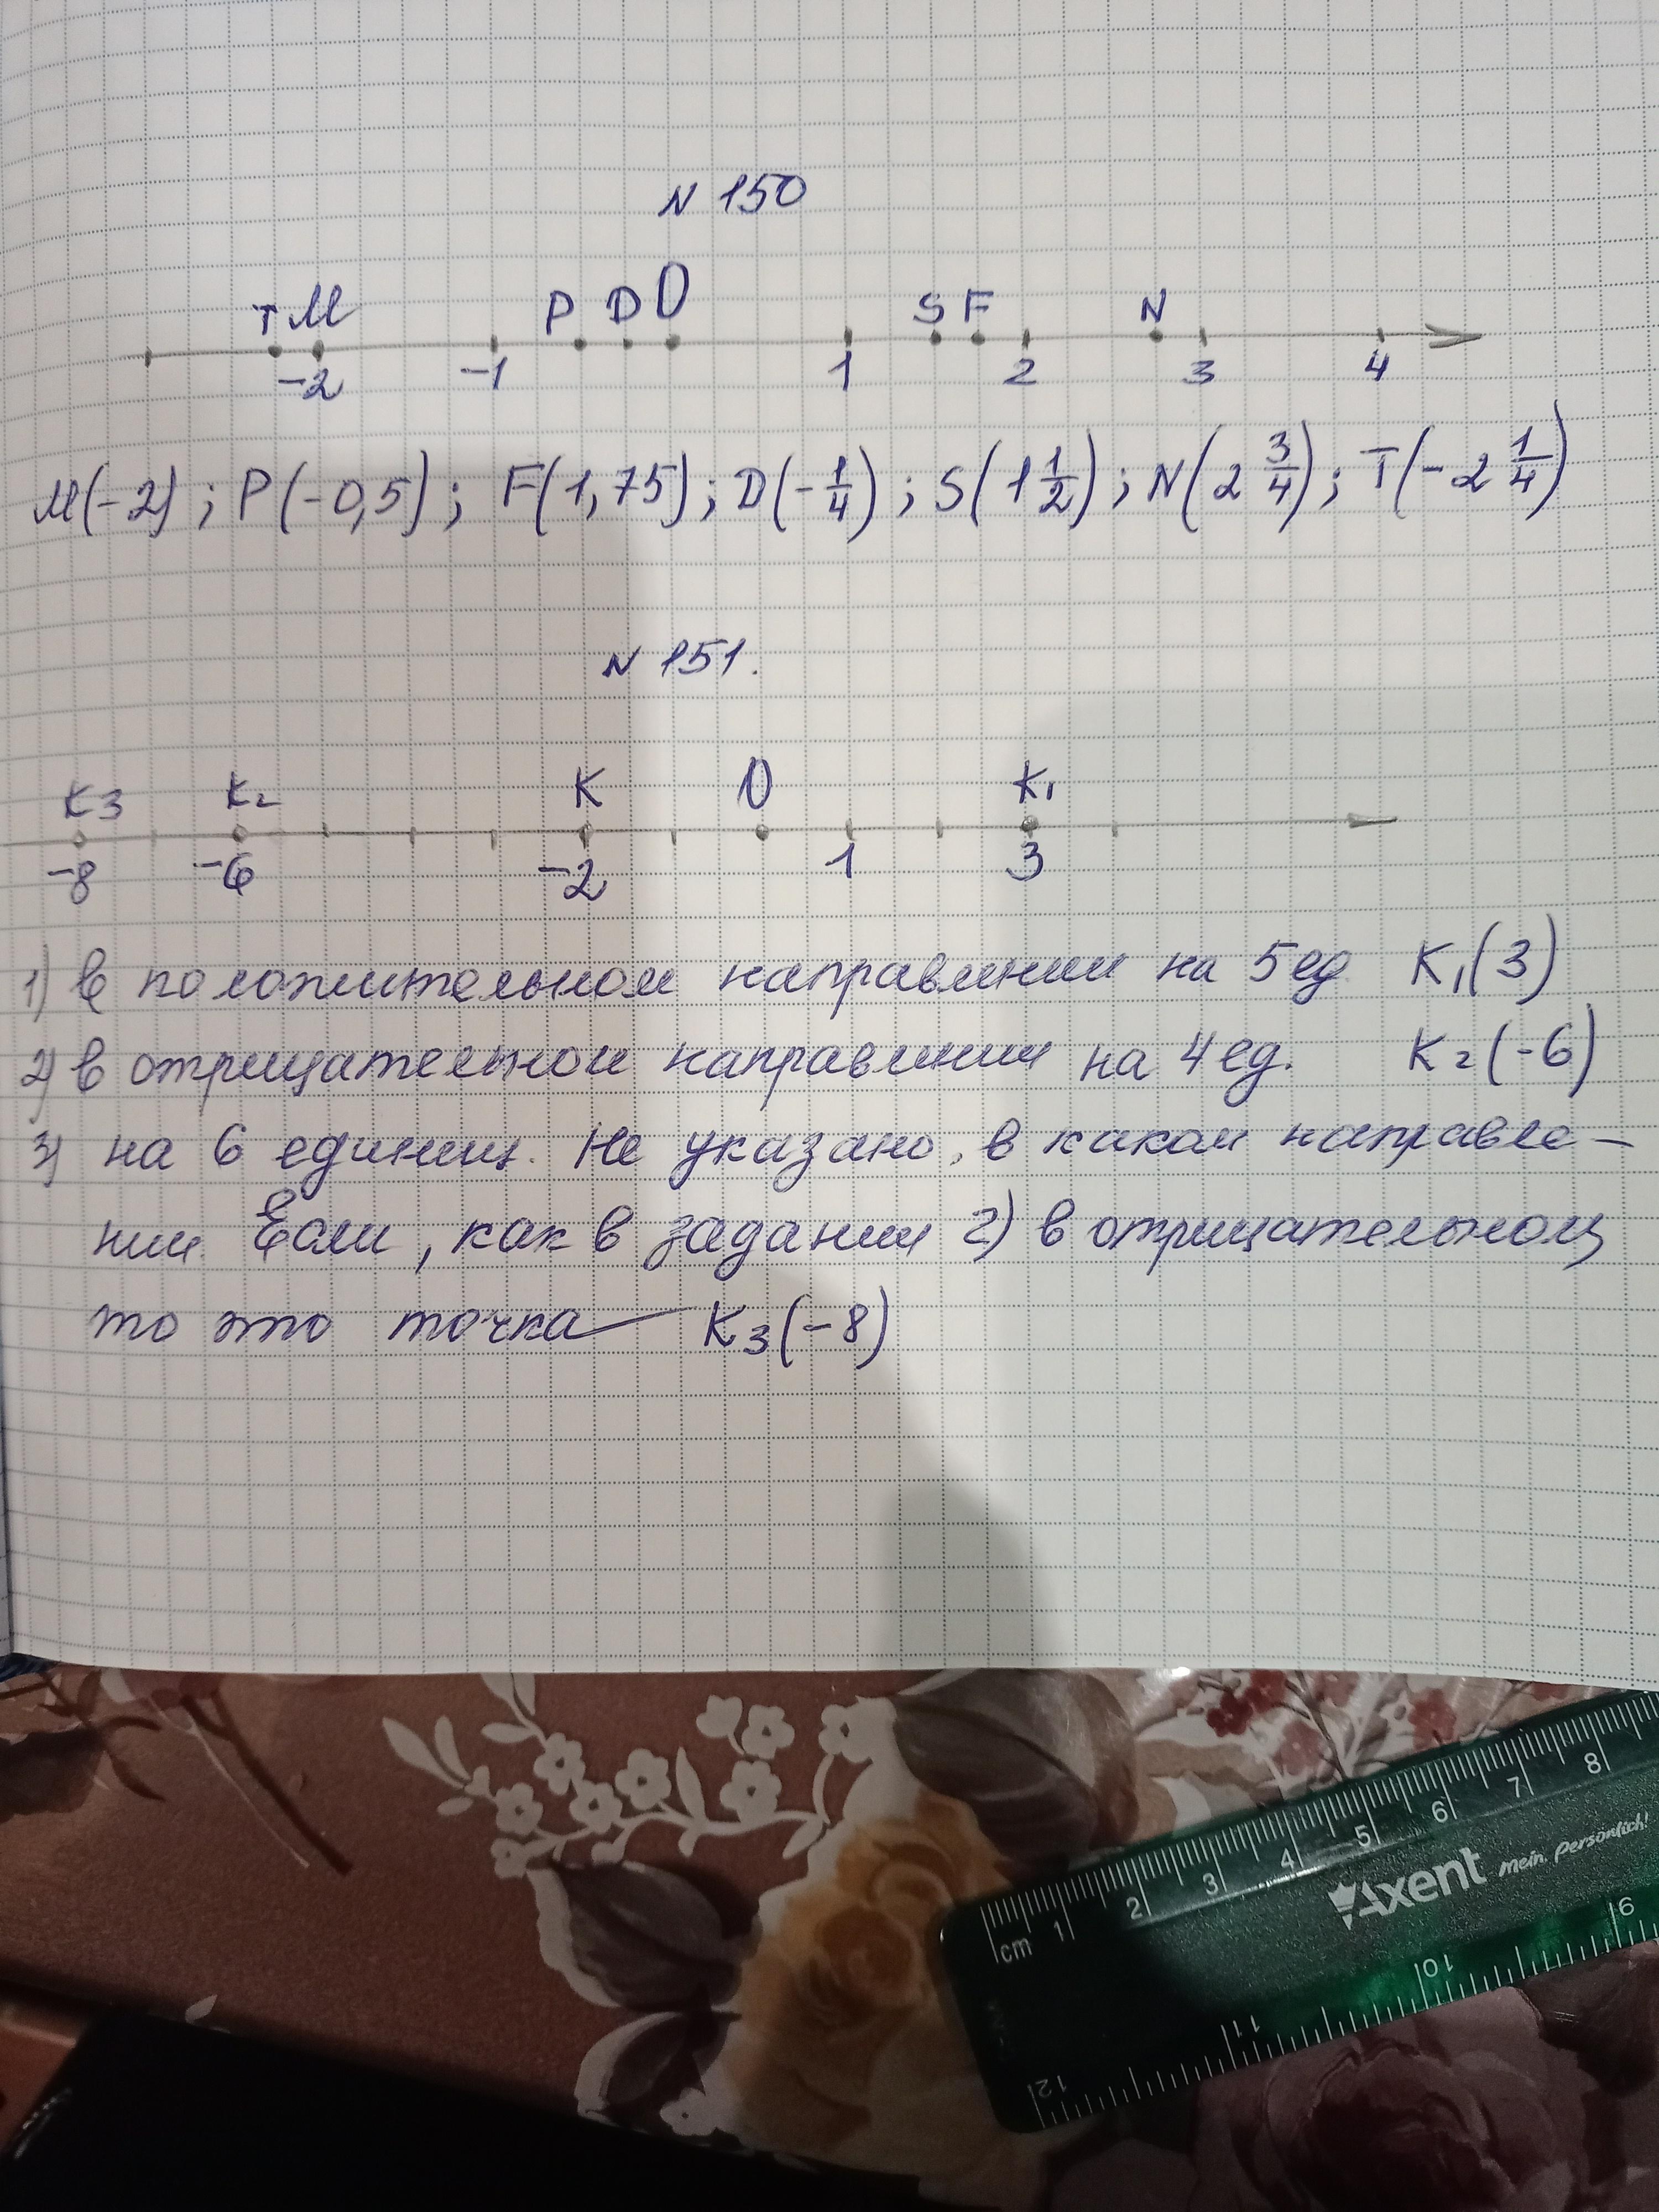 N 150
T M P D O S F N
-2 -1 1 2 3 4
M(-2); P(-0,5); F(1,75); D(-1/4); S(1 1/2); N(2 3/4); T(-2 1/4)
N 151.
K3 K2 K O K1
-8 -6 -2 1 3
1) в положительном направлении на 5 ед K1(3)
2) в отрицательном направлении на 4 ед. K2(-6)
3) на 6 единиц. Не указано, в каком направле-
нии. Если, как в задании 2) в отрицательном,
то это точка K3(-8)
cm 1 2 3 4 5 6 7 8
Axent mein persönlich!
12 11 10 9